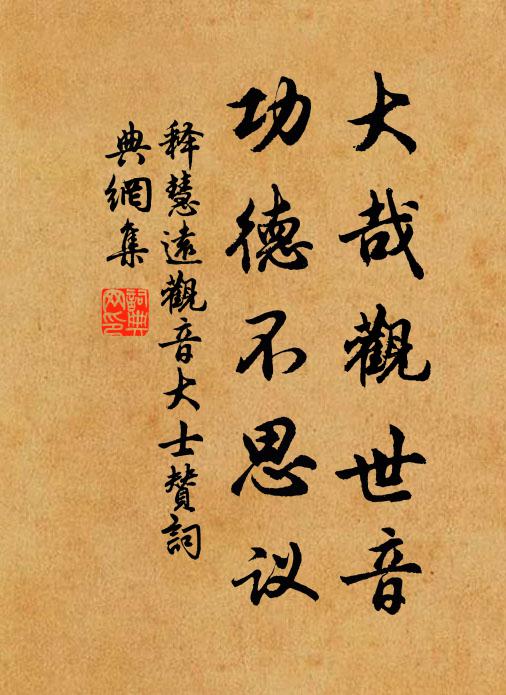 大哉觀世音
功德不思议
释慧遠觀音大士賛詞
典網集
詞典
网印